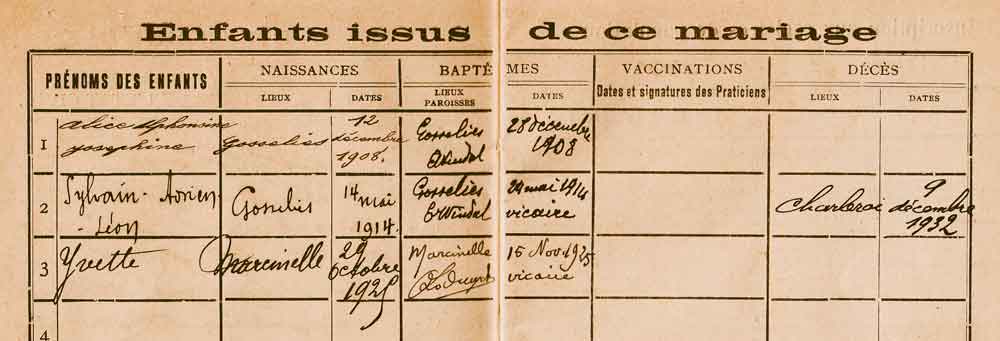 Enfants issus de ce mariage
PRÉNOMS DES ENFANTS NAISSANCES BAPTÊMES VACCINATIONS DÉCÈS
LIEUX DATES LIEUX PAROISSES DATES Dates et signatures des Praticiens LIEUX DATES
1 Alice Alphonsine Josephine Gosselies 12 décembre 1908. Gosselies 28 décembre 1908
2 Sylvain-Adrien-Léon Gosselies 14 mai 1914. Gosselies 24 mai 1914 vicaire Charleroi 9 décembre 1932
3 Yvette Marcinelle 29 octobre 1925 Marcinelle 15 Nov 1925 vicaire
4